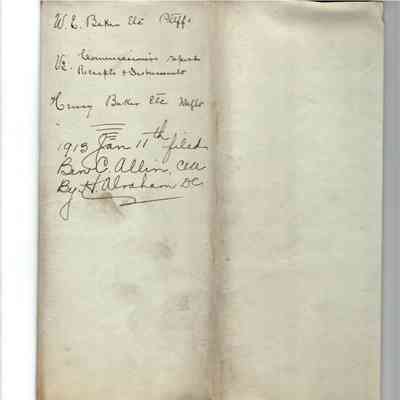 W. E. Baker Etc Pltffs
Vs. Commissioners report
Receipts & Disbursements
Henry Baker Etc Defts
1913 Jan 11th filed
Ben C. Allin, CCC
By H. Abraham DC